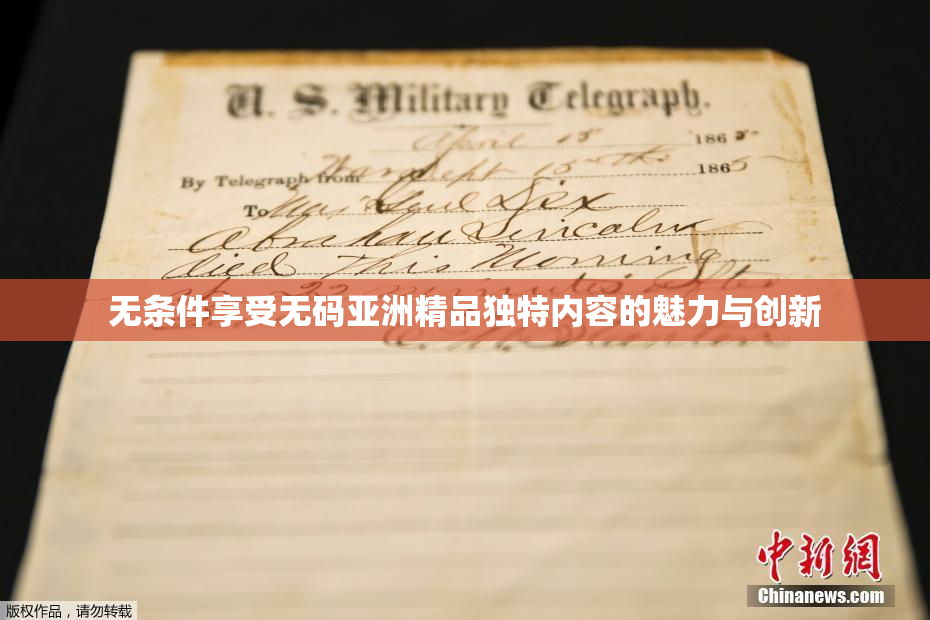 U. S. Military Telegraph.
April 15 1865
By Telegraph from War Dept 15th 1865
To Maj Genl Dix
Abraham Lincoln
died This Morning
at 22 minutes after
无条件享受无码亚洲精品独特内容的魅力与创新
E. M. Stanton
中新网
Chinanews.com
版权作品，请勿转载